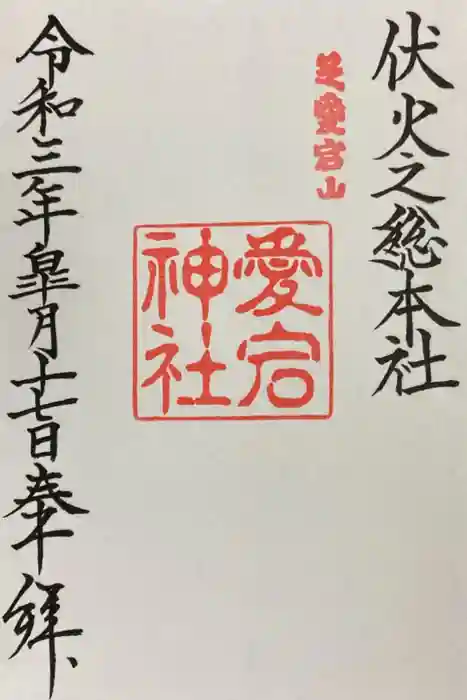 伏火之総本社
芝愛宕山
愛宕
神社
令和三年皐月十七日奉拝